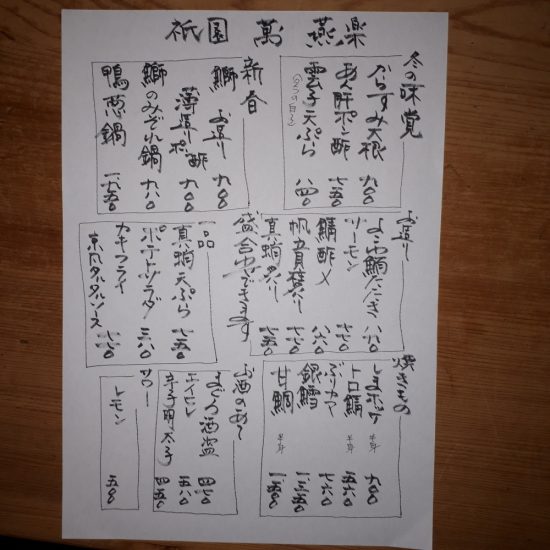 祇園 萬 燕楽
冬の味覚
からすみ大根 九〇〇
あん肝ポン酢 七五〇
雲子天ぷら 八四〇
新春
鰤 お造り 九〇〇
薄造りポン酢 九〇〇
鰤のみぞれ鍋 九八〇
鴨葱鍋
お造り
よこわ鯛たたき 八八〇
サーモン 七七〇
鯖酢〆 八六〇
帆立貝柱
真蛸
盛合せできます
一品
真蛸天ぷら 七五〇
ポテトサラダ 三八〇
カキフライ
京風タルタルソース 七七〇
焼きもの
しまホッケ 半身 九〇〇
トロ鯖 半身 五六〇
ぶりカマ 七六〇
銀鱈
甘鯛 半身
お酒のあて
まぐろ酒盗 四七〇
エイヒレ 五八〇
辛子明太子 四五〇
サワー
レモン 五五〇